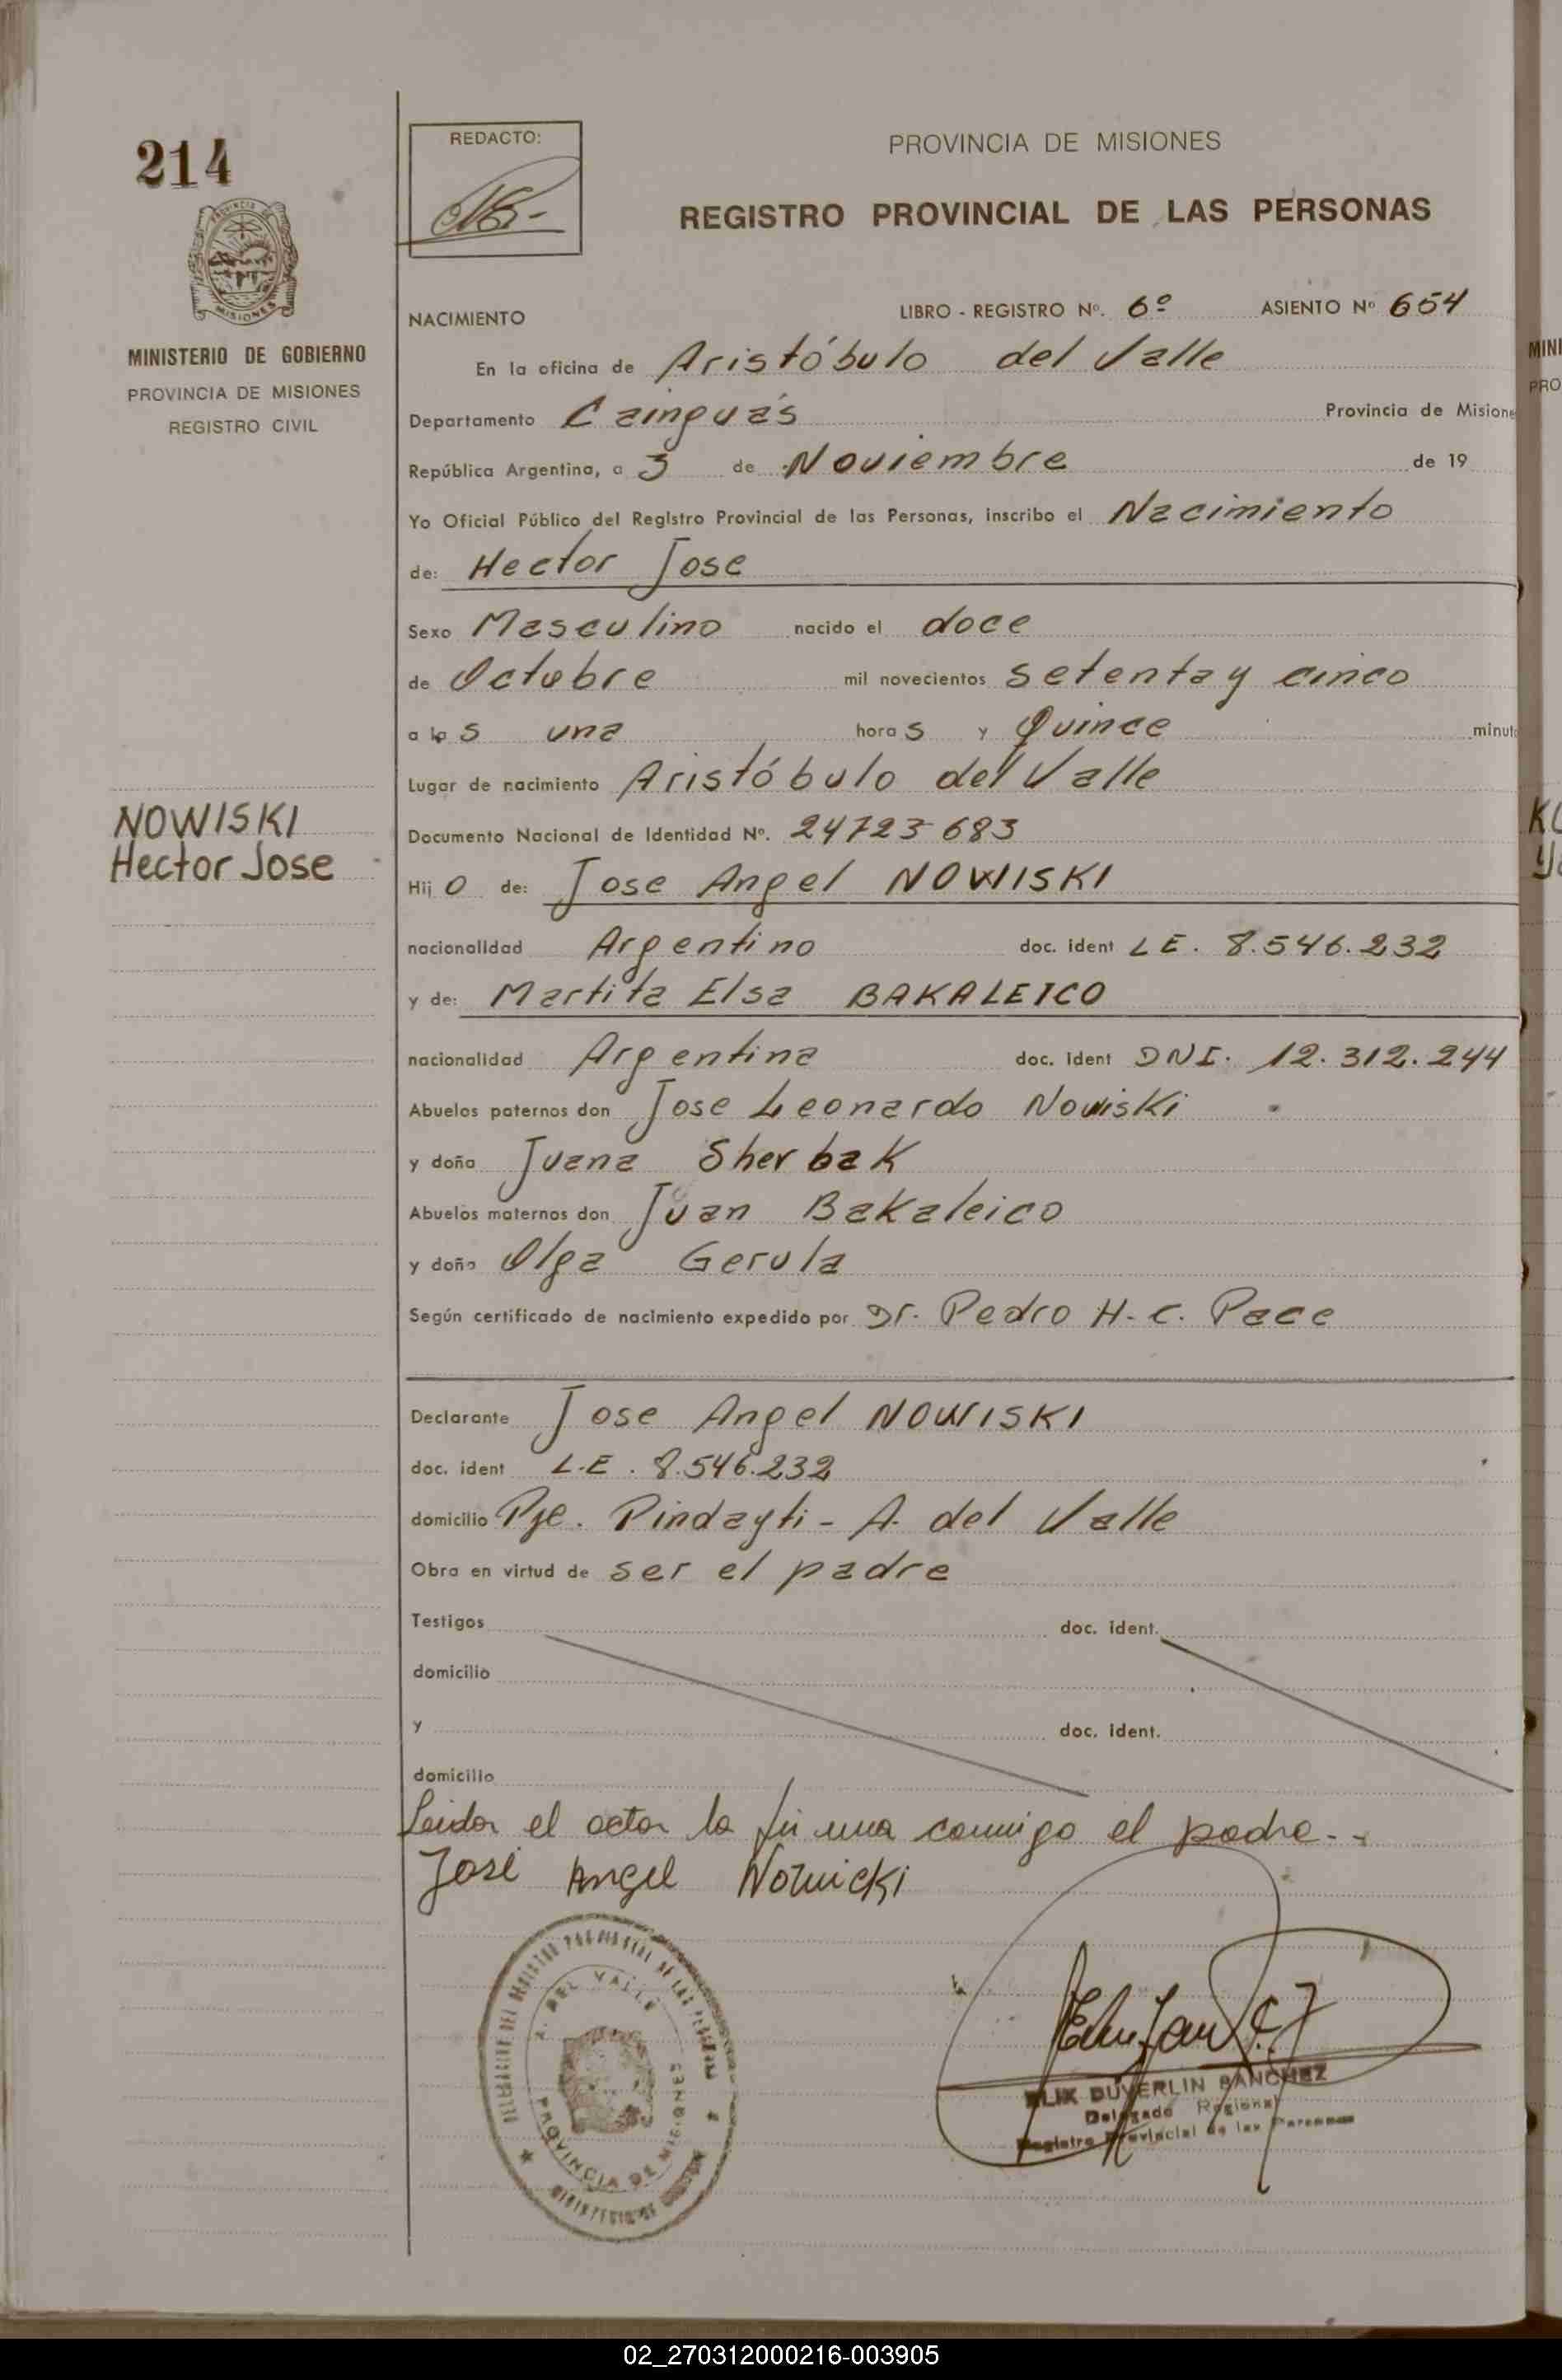 214
REDACTO:
PROVINCIA DE MISIONES
REGISTRO PROVINCIAL DE LAS PERSONAS
MINISTERIO DE GOBIERNO
PROVINCIA DE MISIONES
REGISTRO CIVIL
NACIMIENTO LIBRO - REGISTRO Nº. 6º ASIENTO Nº 654
En la oficina de Aristóbulo del Valle
Departamento Cainguás Provincia de Misione
República Argentina, a 3 de Noviembre de 19
Yo Oficial Público del Registro Provincial de las Personas, inscribo el Nacimiento
de: Hector Jose
Sexo Masculino nacido el doce
de Octubre mil novecientos setenta y cinco
a las una horas y Quince minut
Lugar de nacimiento Aristóbulo del Valle
NOWISKI
Hector Jose
Documento Nacional de Identidad Nº. 24723683
Hijo de: Jose Angel NOWISKI
nacionalidad Argentino doc. ident LE. 8.546.232
y de: Martita Elsa BAKALEICO
nacionalidad Argentina doc. ident DNI. 12.312.244
Abuelos paternos don Jose Leonardo Nowiski
y doña Juana Sherbak
Abuelos maternos don Juan Bakaleico
y doña Olga Gerula
Según certificado de nacimiento expedido por Dr. Pedro H. C. Pace
Declarante Jose Angel NOWISKI
doc. ident L.E. 8.546.232
domicilio Pje. Pindayti - A. del Valle
Obra en virtud de ser el padre
Testigos doc. ident.
domicilio
y doc. ident.
domicilio
Leida el acta la firma conmigo el padre.-
José Angel Nowicki
A. DEL VALLE
PROVINCIA DE MISIONES
ELIX DUVERLIN SANCHEZ
Delegado Regional
Registro Provincial de las Personas
MINI
PRO
02_270312000216-003905